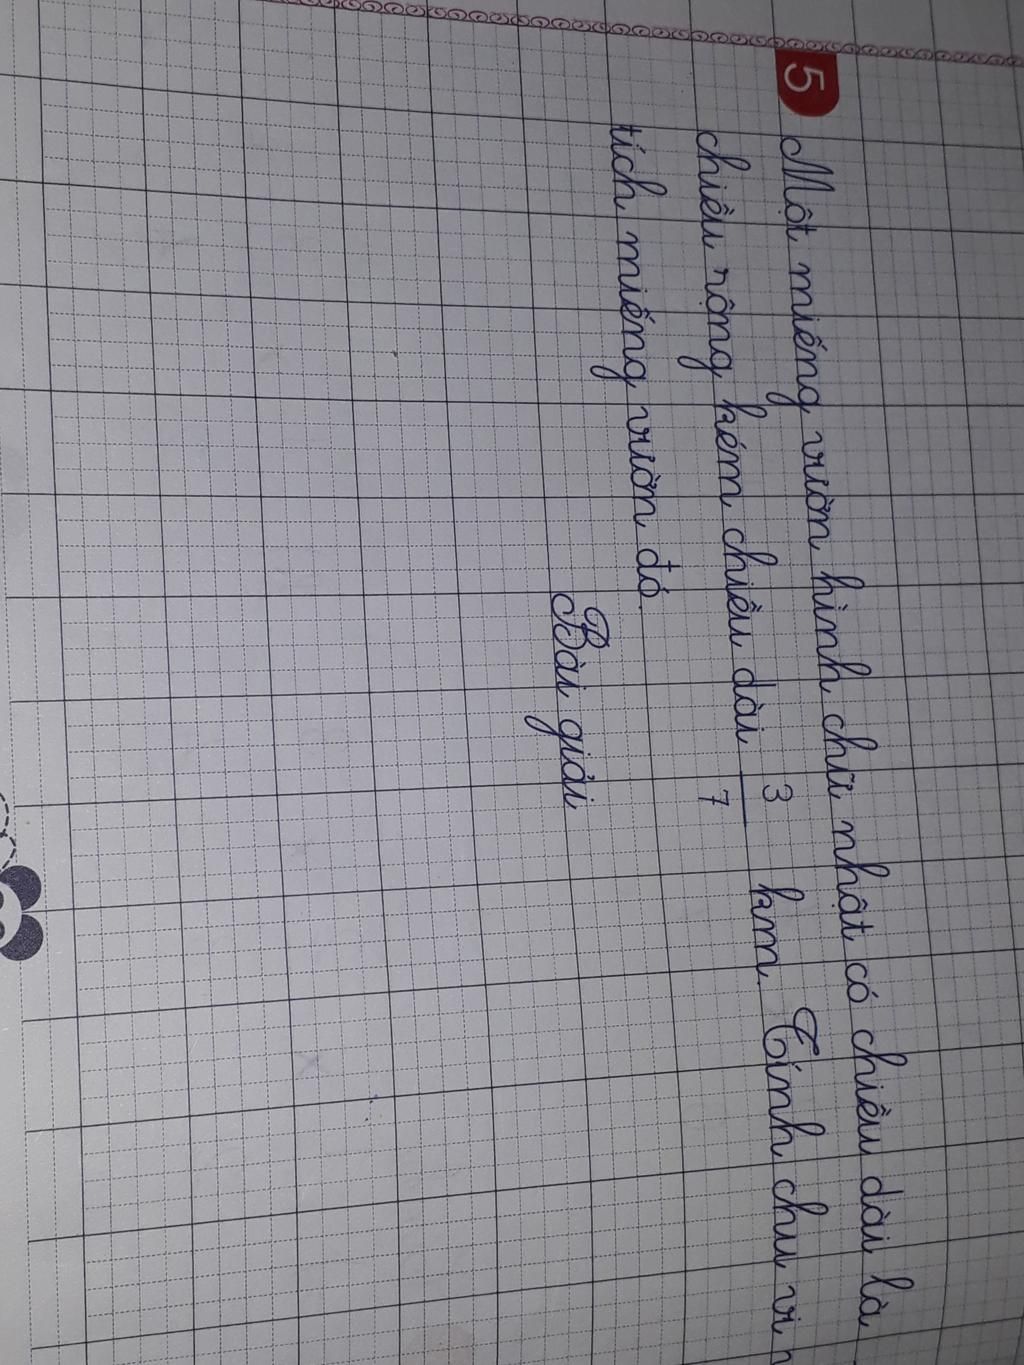 5 Một miếng vườn hình chữ nhật có chiều dài là
chiều rộng kém chiều dài 3/7 km. Tính chu vi
tích miếng vườn đó.
Bài giải